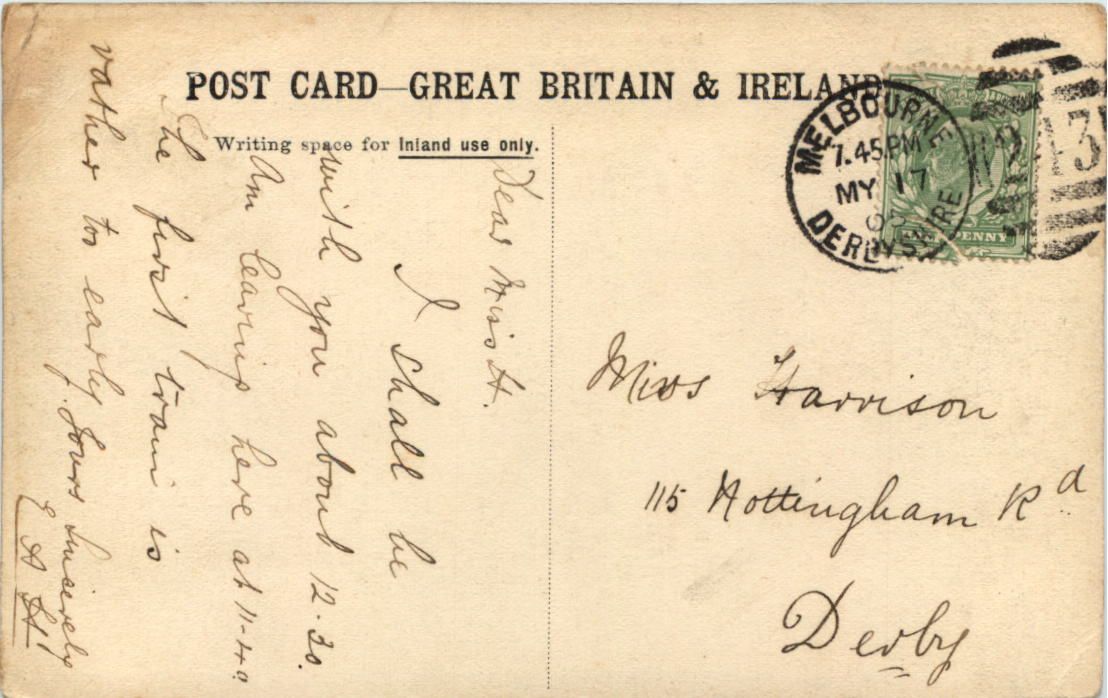 POST CARD—GREAT BRITAIN & IRELAND
Writing space for Inland use only.
MELBOURNE
7.45PM
MY 17
DERBYSHIRE
PENNY
Dear Miss H.
I shall be
with you about 12-30.
Am leaving here at 11-40
The first train is
rather too early. Yours sincerely
E A H
Miss Harrison
115 Nottingham Rd
Derby